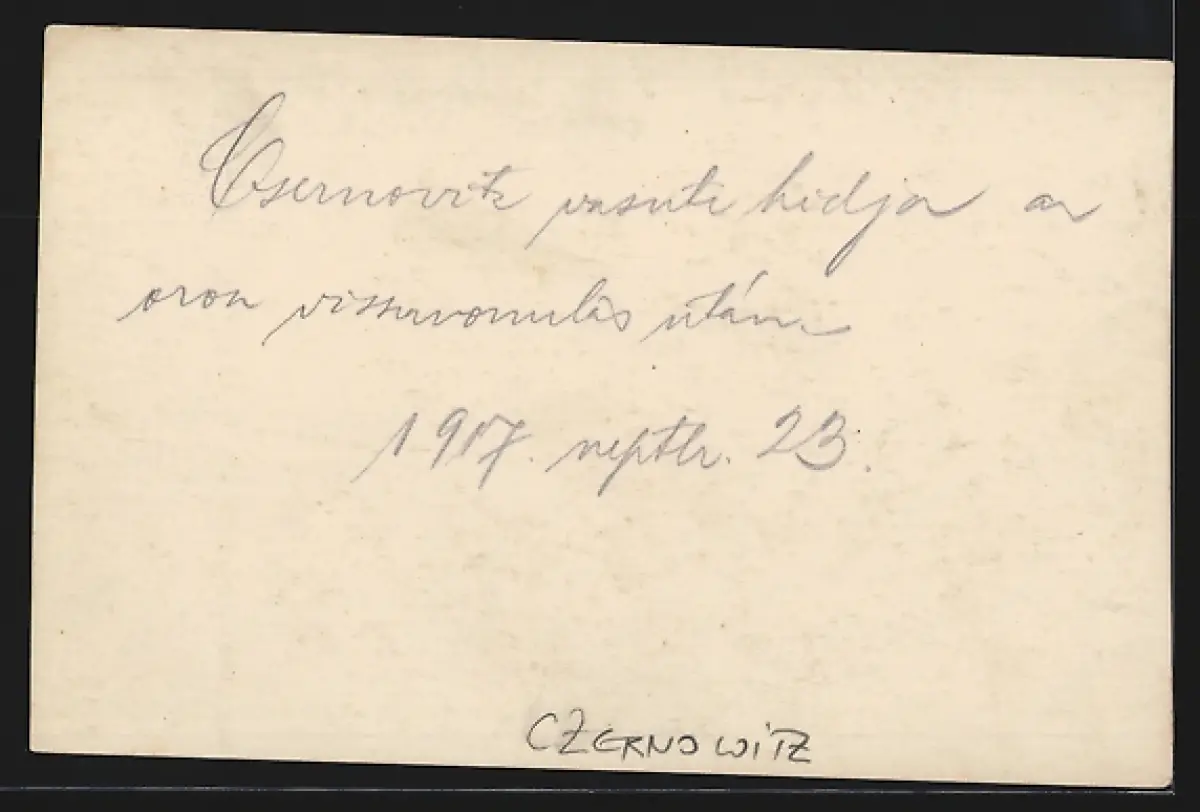 Csernovitz vasuti hidja az
orosz visszavonulás után.
1917. szeptbr. 23.
CZERNOWITZ